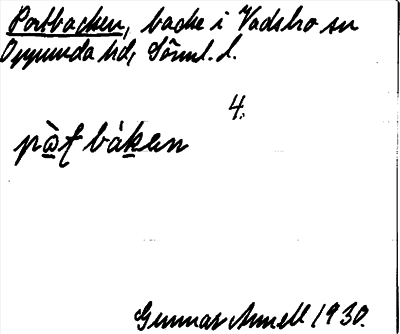 Portbacken, backe i Vadsbro sn
Oppunda hd, Söml. l.
4.
Gunnar Amell 1930.